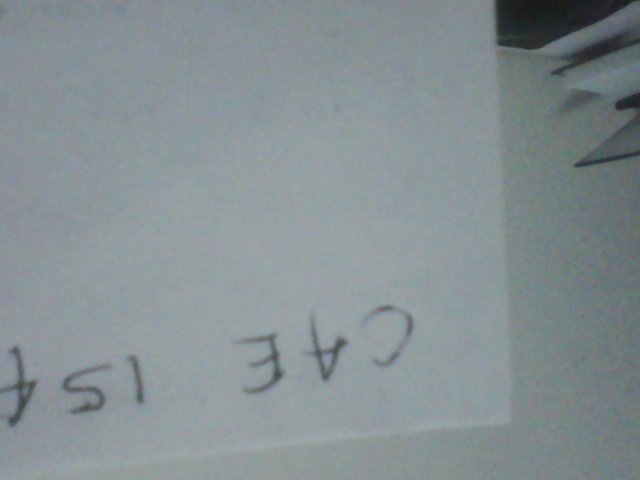 CAE 154